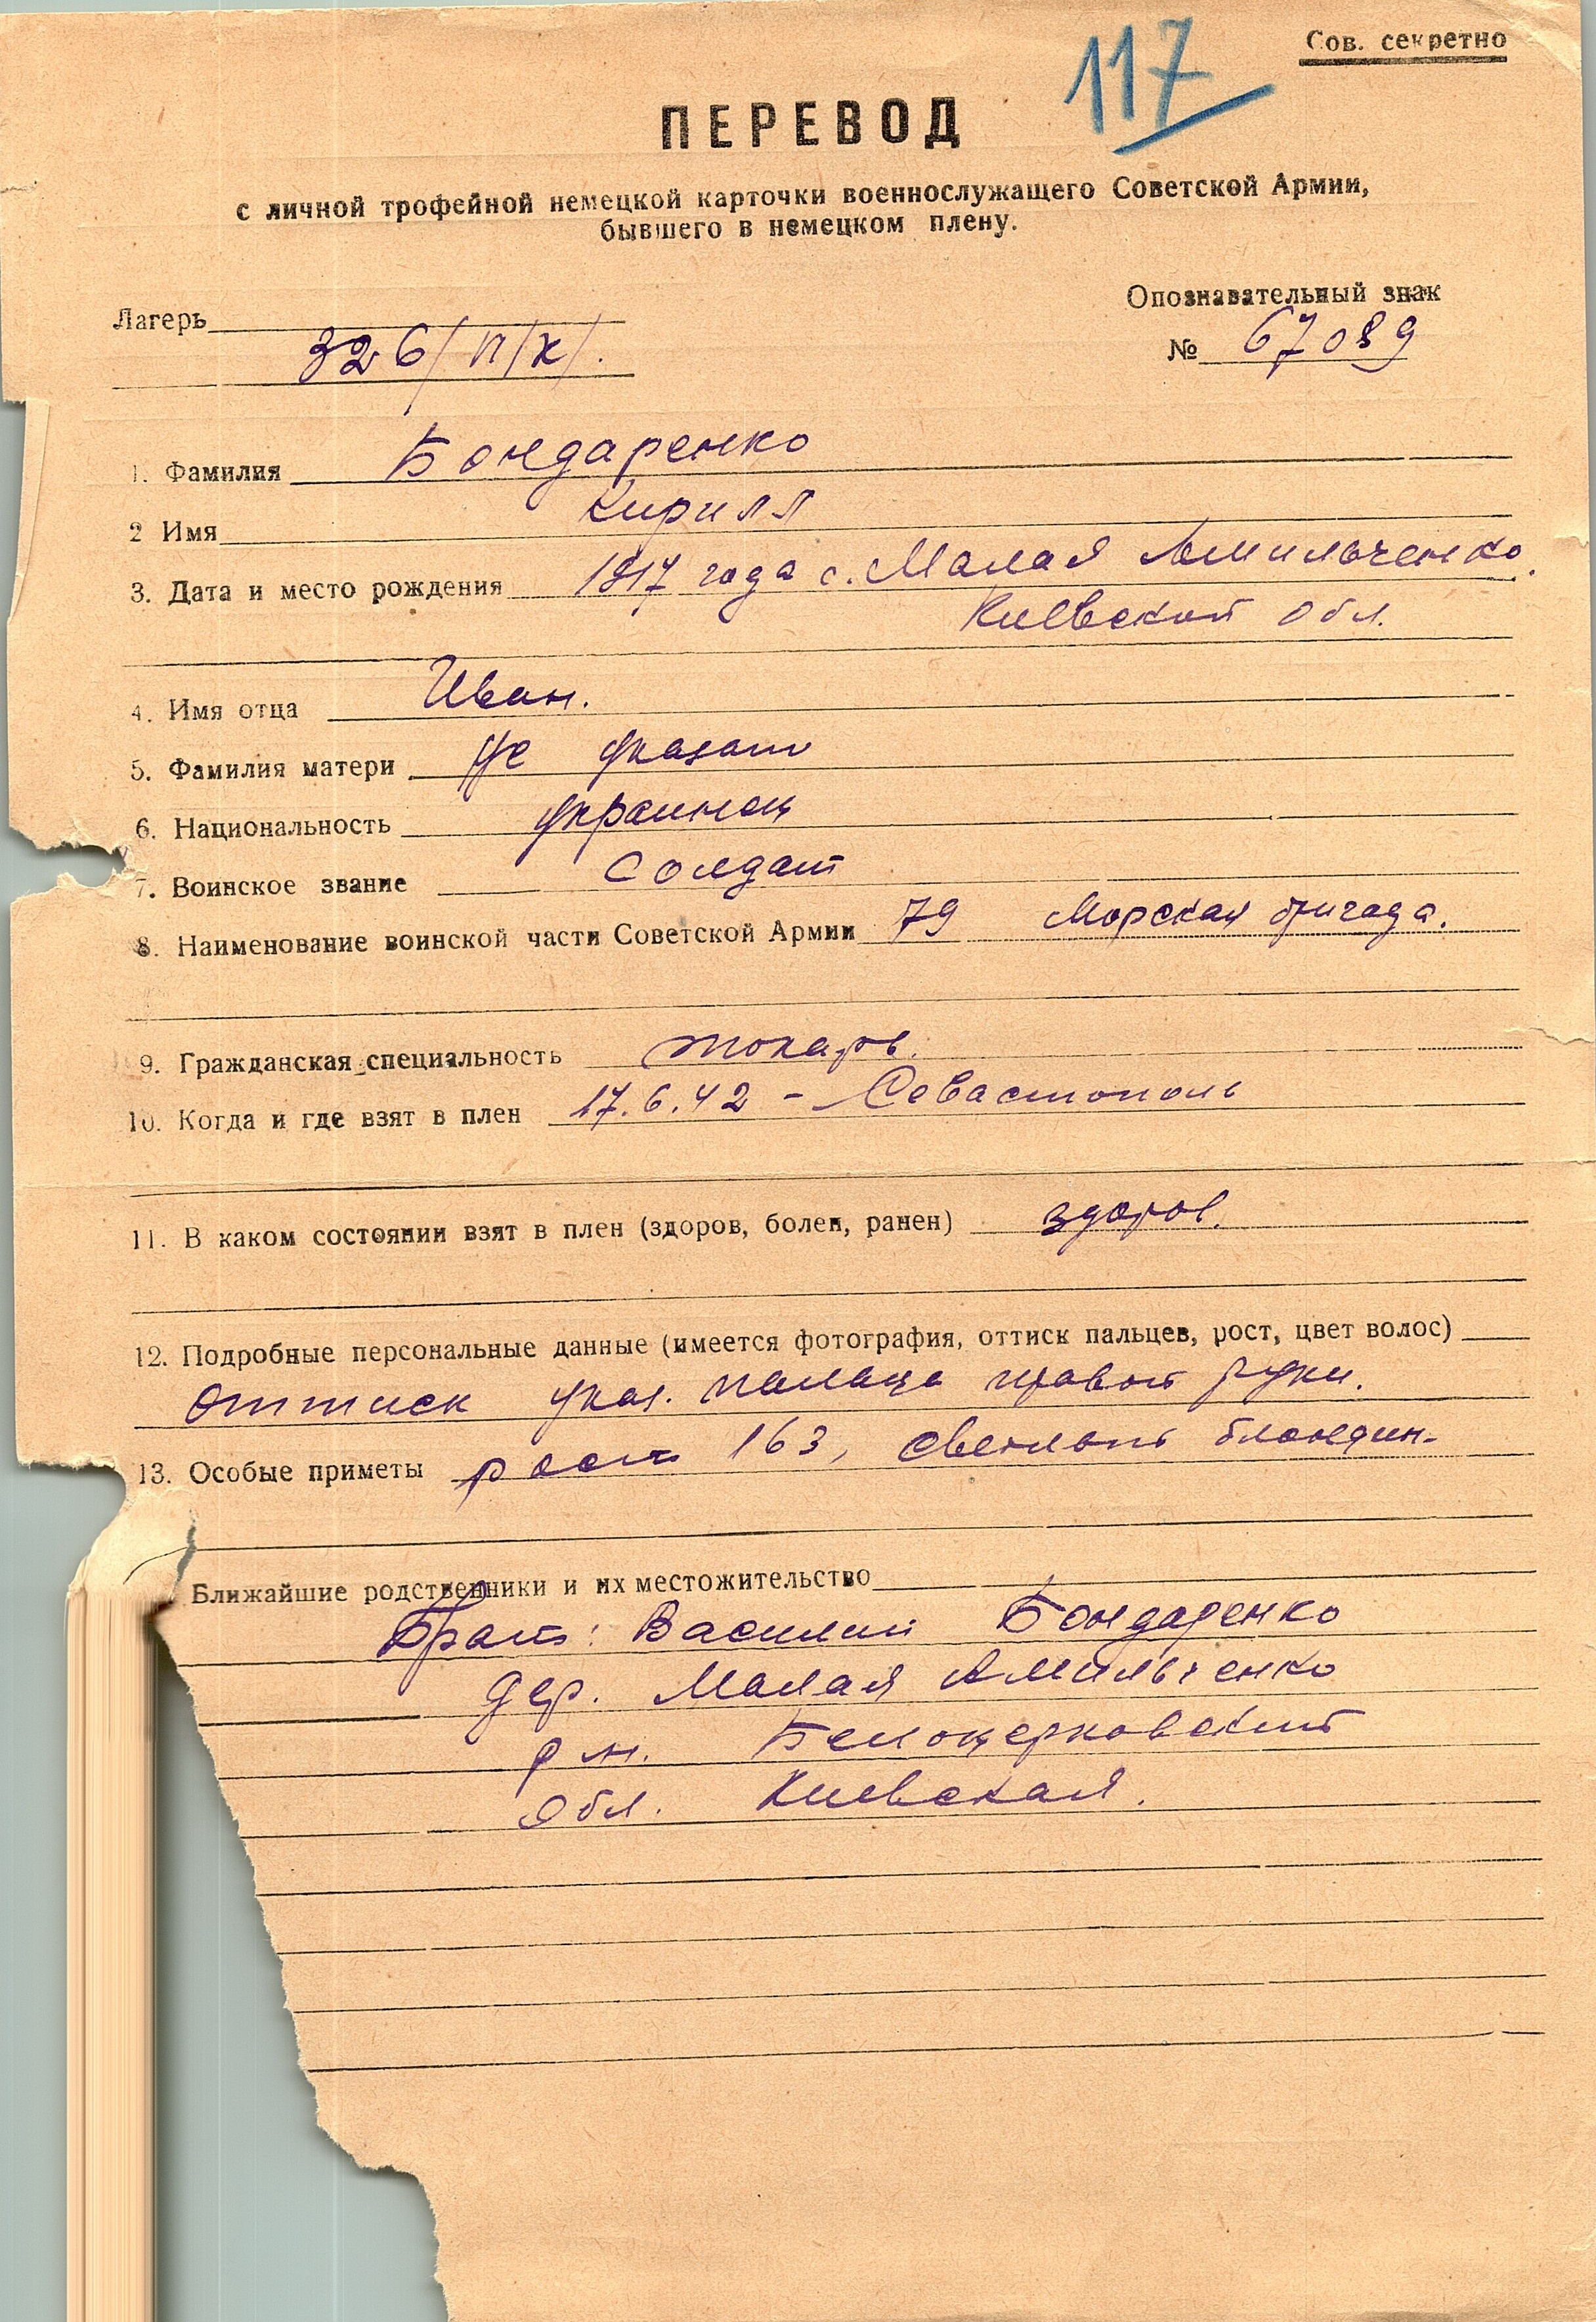 Сов. секретно
117
ПЕРЕВОД
с личной трофейной немецкой карточки военнослужащего Советской Армии,
бывшего в немецком плену.
Лагерь
326/П/К/.
Опознавательный знак
№ 67089
1. Фамилия Бондаренко
2 Имя Кирилл
3. Дата и место рождения 1917 года с. Малая Амильченко.
Киевской обл.
4. Имя отца Иван.
5. Фамилия матери Не указано
6. Национальность украинец
7. Воинское звание солдат
8. Наименование воинской части Советской Армии 79 Морская бригада.
9. Гражданская специальность токарь.
10. Когда и где взят в плен 17.6.42 - Севастополь
11. В каком состоянии взят в плен (здоров, болен, ранен) здоров.
12. Подробные персональные данные (имеется фотография, оттиск пальцев, рост, цвет волос)
оттиск указ. пальца правой руки.
13. Особые приметы рост 163, светлый блондин.
Ближайшие родственники и их местожительство
Брат: Василий Бондаренко
дер. Малая Амильченко
р-н. Белоцерковский
обл. Киевская.